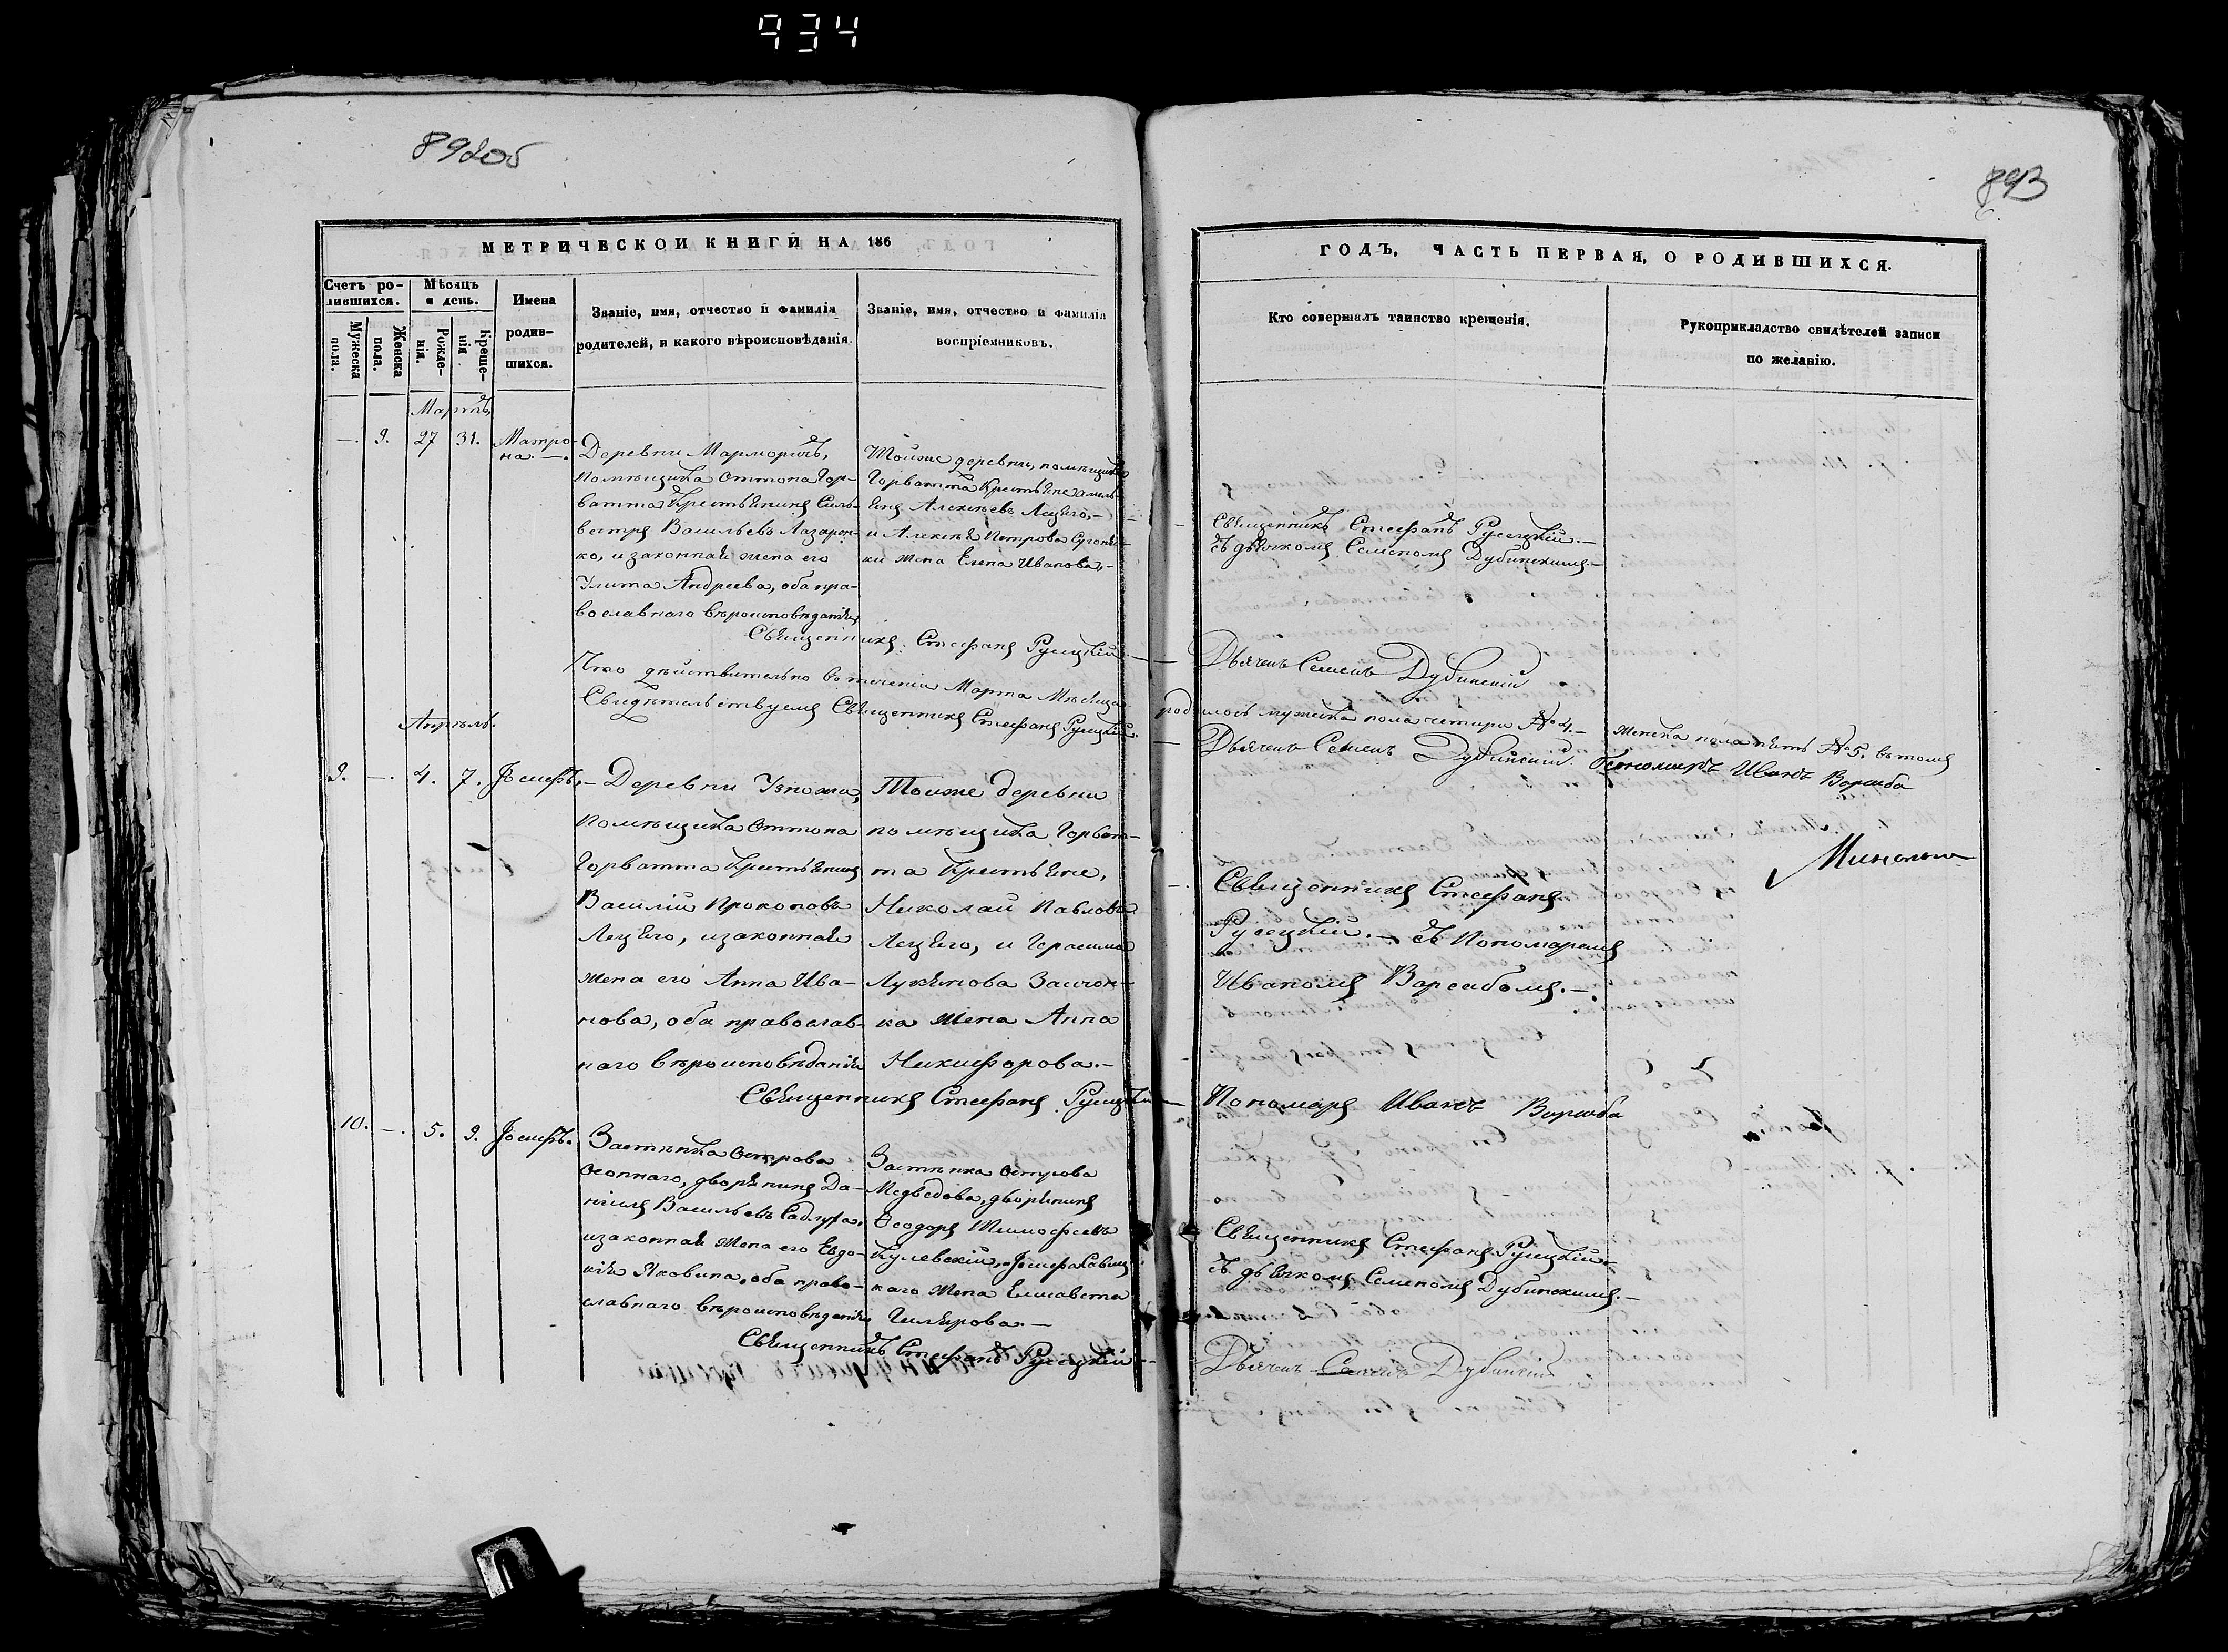 934
892об
893
МЕТРИЧЕСКОЙ КНИГИ НА 186
ГОДЪ, ЧАСТЬ ПЕРВАЯ, О РОДИВШИХСЯ.
Счетъ ро-
дившихся.
Мѣсяцъ
и день.
Имена
родив-
шихся.
Мужеска
пола.
Женска
пола.
Рожде-
нія.
Креще-
нія
Званіе, имя, отчество и фамилія
родителей, и какого вѣроисповѣданія.
Званіе, имя, отчество и фамилія
воспріемниковъ.
Кто совершалъ таинство крещенія.
Рукоприкладство свидѣтелей записи
по желанію.
Мартъ
—. 9. 27 31. Матро-
на. —.
Деревни Марморичъ,
помѣщика Оттона Гор-
ватта крестьянинъ Силь-
вестръ Васильевъ Лазарен-
ко, и законная жена его
Улита Андреева, оба пра-
вославнаго вѣроисповѣданія
Тойже деревни, помѣщика
Горватта крестьяне
Алексѣевъ Лецяго,—
и Алексѣя Петрова
жена Елена Иванова,—
Священникъ Стефанъ Русецкій.—
съ дьячкомъ Семеномъ Дубинскимъ.—
Священникъ Стефанъ Русецкій.—
Дьячекъ Семенъ Дубинскій
Что дѣйствительно въ теченіи Марта Мѣсяца родилось мужеска пола четыри №4.— женска пола пять №5. въ томъ
Свидѣтельствуемъ Священникъ Стефанъ Русецкій.— Дьячекъ Семенъ Дубинскій. Пономарь Иванъ Варсаба
Апрѣль.
9. —. 4. 7. Іосифъ.—
Деревни Узножи,
помѣщика Оттона
Горватта крестьянинъ
Василій Прокоповъ
Лецяго, и законная
жена его Анна Ива-
нова, оба православ-
наго вѣроисповѣданія
Тойже деревни
помѣщика Горват-
та крестьяне,
Николай Павловъ
Лецяго, и Герасима
жена Анна
Никифорова.—
Священникъ Стефанъ
Русецкій.— съ Пономаремъ
Иваномъ Варсабомъ.—
Священникъ Стефанъ Русецкій—
Пономарь Иванъ Варсаба
10. —. 5. 9. Іосифъ.
Застѣнка Острова
дворянинъ Да-
ніилъ Васильевъ
и законная жена его Евдо-
кія Яковина, оба право-
славнаго вѣроисповѣданія
Застѣнка Острова
Медведова, дворянинъ
Ѳеодоръ Тимофеевъ
жена Елисавета
Священникъ Стефанъ Русецкій—
съ дьячкомъ Семеномъ Дубинскимъ.—
Священникъ Стефанъ Русецкій—
Дьячекъ Семенъ Дубинскій